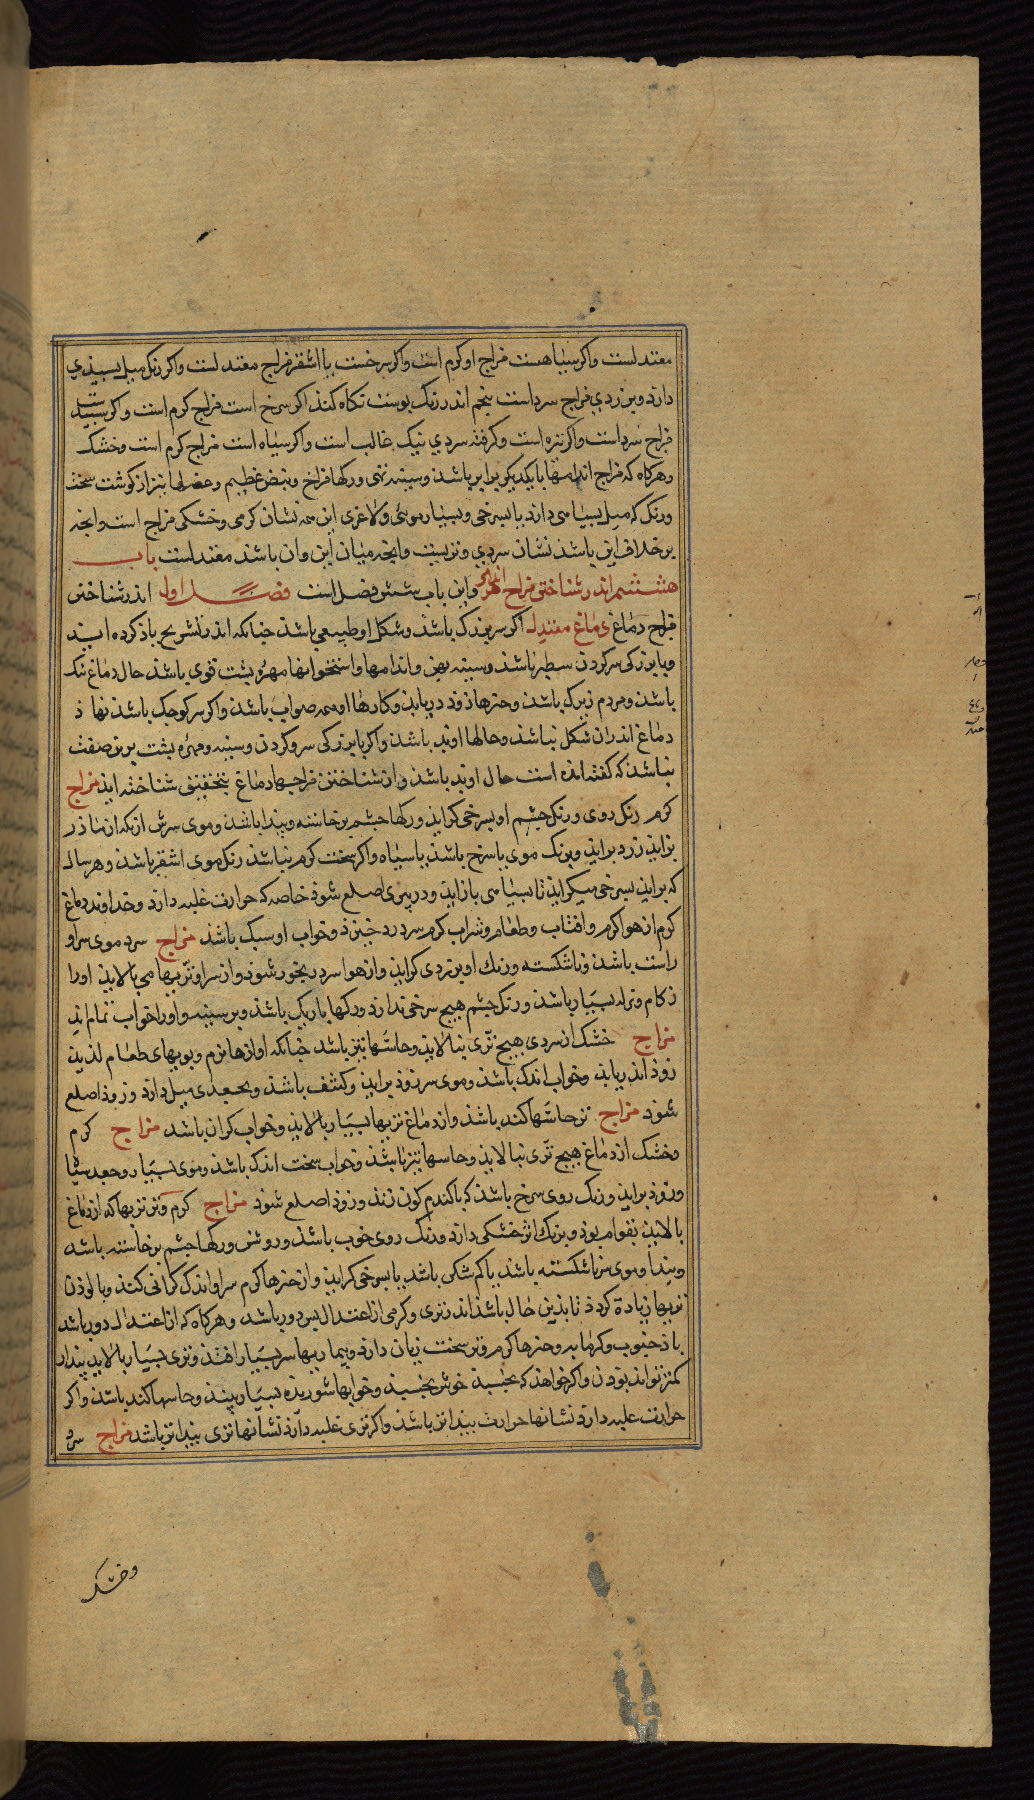 معتدلست واکر سیاهست مزاج او کرم است واکر سرخست یا اشقر مزاج معتدلست واکر رنک میل بسپیدی
دارد وبزردی مزاج سرد است پنجم اندر رنک پوست نکاه کند اکر سرخ است مزاج کرم است و کر سپیدست
مزاج سرد است واکر تیره است و کرفته سردی نیک غالب است واکر سیاه است مزاج کرم است وخشک
وهرکاه که مزاج اندامها با یکدیکر برابر باشد وسینه نهی ورکها فراخ ونبض عظیم وعضلها بتر از کوشت سخت
ورنک که میل بسیاهی دارد یا بسرخی وبسیار موئی ولاغری این همه نشان کرمی وخشکی مزاج است وانچه
برخلاف این باشد نشان سردی وتریست وانچه میان این وان باشد معتدلست باب
هشتم اندر شناختن مزاج اندامها واین باب شش فصل است فصل اول اندر شناختن
مزاج دماغ دماغ معتدل اکر سر بزرک باشد وشکل او طبیعی باشد چنانکه اندر تشریح یاذ کرده امد
وبا بزرکی سر کردن سطبر باشد وسینه پهن واندامها واستخوانها مهره پشت قوی باشد حال دماغ نیک
باشد ومردم زیرک باشد وچیزها زوذ دریابد وکارها او همه صواب باشد واکر سر کوچک باشد نهاذ
دماغ اندران شکل نباشد وحالها او بد باشد واکر با بزرکی سر وکردن وسینه ومهره پشت برین صفت
نباشد که کفته امده است حال او بد باشد واز شناختن مزاجها دماغ بتحقیق شناخته اید مزاج
کرم رنک روی ورنک چشم او بسرخی کراید ورکها چشم برخاسته وپیدا باشد وموی سرش ازانکه از ماذر
بزاید زود براید وبرنک موی یا سرخ باشد یا سیاه واکر سخت کرم نباشد رنک موی اشقر باشد وهر سال
که براید بسرخی میکراید تا بسیاهی بازاید ودر پیری اصلع شوذ خاصه که حرارت غلبه دارد وخداوند دماغ
کرم از هوا کرم وافتاب وطعام وشراب کرم سر درد خیزذ وخواب او سبک باشد مزاج سرد موی سر او
راست باشد وناشکسته ورنک او بزردی کراید واز هوا سرد رنجور شوذ واز سر او تریها می پالاید اورا
زکام ونزله بسیار باشد ورنک چشم هیچ سرخی ندارد ورکها باریک باشد وبر سینه واورا خواب تمام اید
مزاج خشک از سردی هیچ تری نپالاید وحاسها تیز باشد چنانکه اوازها نرم وبویهای طعام لذیذ
زوذ اندر یابد وخواب اندک باشد وموی سر زوذ براید وکشف باشد وبجعدی میل دارد وزوذ اصلع
شوذ مزاج تر حاسها کند باشد واز دماغ تریها بسیار پالاید وخواب کران باشد مزاج کرم
وخشک از دماغ هیچ تری نپالاید وحاسها تیز باشد وخواب سخت اندک باشد وموی بسیار وجعد سیاه
وزوذ براید ورنک روی سرخ باشد که باکندم کون زند وزوذ اصلع شوذ مزاج کرم وتر تریها که از دماغ
پالاید بقوام بوذ وبرنک اثر خشکی دارد ورنک روی خوب باشد وروشن ورکها چشم برخاسته باشد
وپیدا وموی سر ناشکسته باشد یا کم شکن باشد یا بسرخی کراید واز چیزها کرم سر او اندک کرانی کند وپالوذن
تریها زیاده کردذ تا بدین حال باشد اندر تری وکرمی از اعتدال بس دور باشد وهرکاه که از اعتدال دور باشد
باذ جنوب وکرمابه وچیزها کرم وتر سخت زیان دارد وبیماریها سر بسیار افتد وتری بسیار پالاید بیدار
کمتر تواند بوذن واکر خواهذ که بخسبد خوش بخسبد وخوابها شوریذه بسیار بیند وحاسها کند باشد واکر
حرارت غلبه دارد نشانها حرارت پیداتر باشد واکر تری غلبه دارد نشانها تری پیداتر باشد مزاج سرد
وخشک